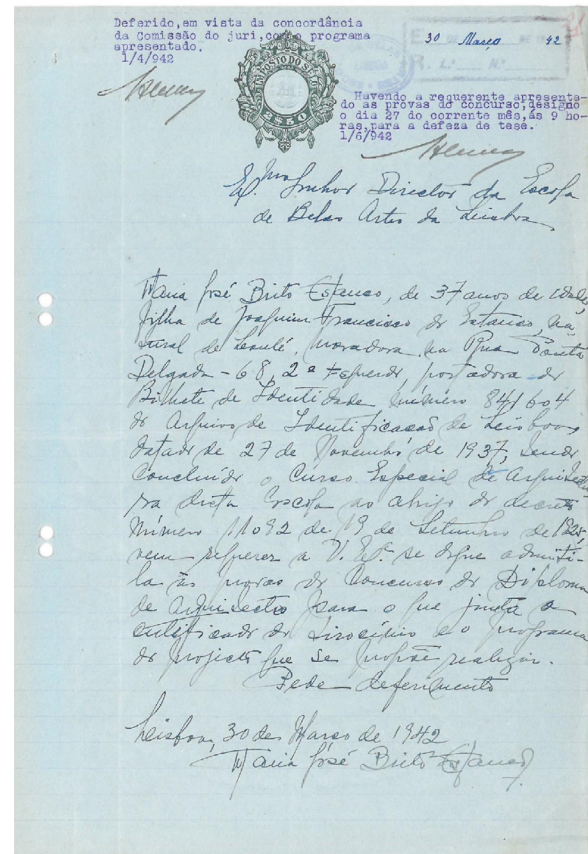 Deferido,em vista da concordância
da Comissão do juri,com o programa
apresentado.
1/4/942
30 Março 42
IMPOSTO DO SELO
2$50
Havendo a requerente apresenta-
do as provas do concurso,designo
o dia 27 do corrente mês,ás 9 ho-
ras,para a defeza de tese.
1/6/942
Exmo Senhor Director da Escola
de Belas Artes de Lisboa
Maria José Brito Estanco, de 37 anos de idade,
filha de Joaquim Francisco do Estanco, na-
tural de Loulé, moradora na Rua Ponta
Delgada - 68, 2º Esquerdo, portadora do
Bilhete de Identidade número 841604
do Arquivo de Identificação de Lisboa,
datado de 27 de Novembro de 1937, tendo
concluido o Curso Especial de Arquitectu-
ra desta Escola ao abrigo do decreto
número 11092 de 19 de Setembro de 1925
vem requerer a V. Exª se digne admiti-
la às provas do Concurso do Diploma
de Arquitecto para o que junta o
certificado do tirocínio e o programa
do projecto que se propõe realizar.
Pede deferimento
Lisboa, 30 de Março de 1942
Maria José Brito Estanco